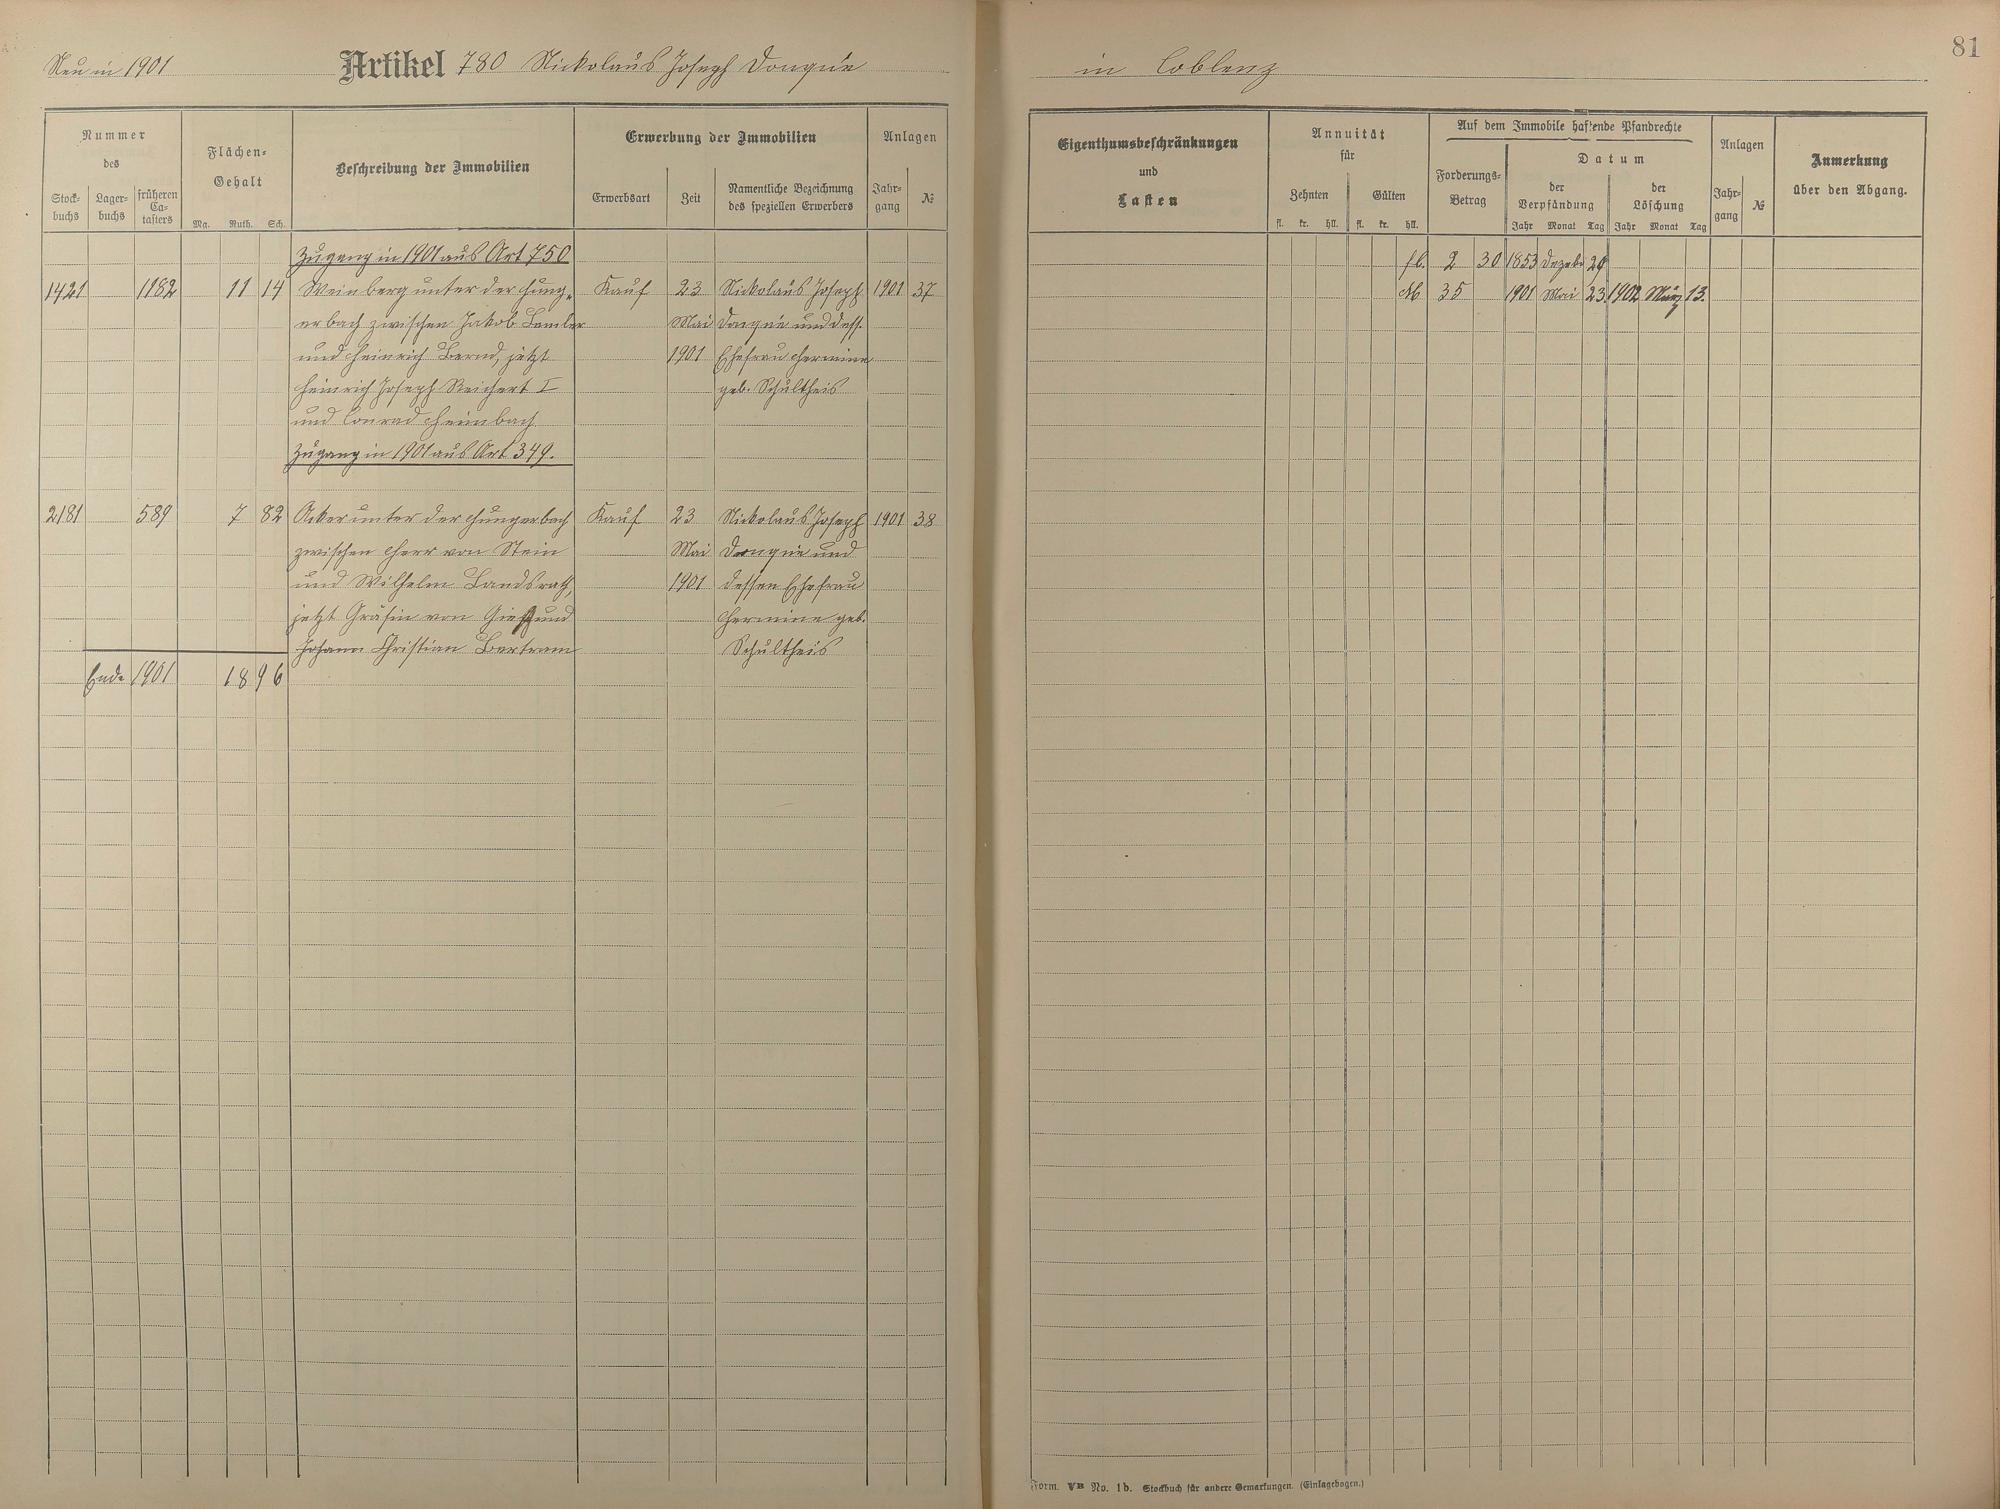 Neu in 1901 Artikel 780 Nickolaus Joseph Donqué in Coblenz 81
Nummer des
Stockbuchs Lagerbuchs früheren Catasters
Flächen-Gehalt
Mg. Ruth. Sch.
Beschreibung der Immobilien
Erwerbung der Immobilien
Erwerbsart Zeit Namentliche Bezeichnung des speziellen Erwerbers
Anlagen
Jahrgang №
Eigenthumsbeschränkungen und Lasten
Annuität für
Zehnten Gülten
fl. kr. hll. fl. kr. hll.
Auf dem Immobile haftende Pfandrechte
Forderungs-Betrag
Datum
der Verpfändung der Löschung
Jahr Monat Tag Jahr Monat Tag
Anlagen
Jahrgang №
Anmerkung über den Abgang.
Zugang in 1901 aus Art 750
fl. 2 30 1853 Dezebr 29
1421 1182 11 14 Weinberg unter der Hung- Kauf 23 Nickolaus Joseph 1901 37
M 35 1901 Mai 23 1902 März 13.
erbach zwischen Jakob Lemler Mai Donqué und dess.
und Heinrich Bernd, jetzt 1901 Ehefrau Hermine
Heinrich Joseph Reichert I geb. Schultheis
und Conrad Heimbach
Zugang in 1901 aus Art 349.
2181 589 7 82 Acker unter der Hungerbach Kauf 23 Nickolaus Joseph 1901 38
zwischen Herr von Stein Mai Donqué und
und Wilhelm Landsrath, 1901 dessen Ehefrau
jetzt Gräfin von und Hermine geb.
Johann Christian Bertram Schultheis
Ende 1901 18 96
Form. VB No. 1b. Stockbuch für andere Gemarkungen. (Einlagebogen.)